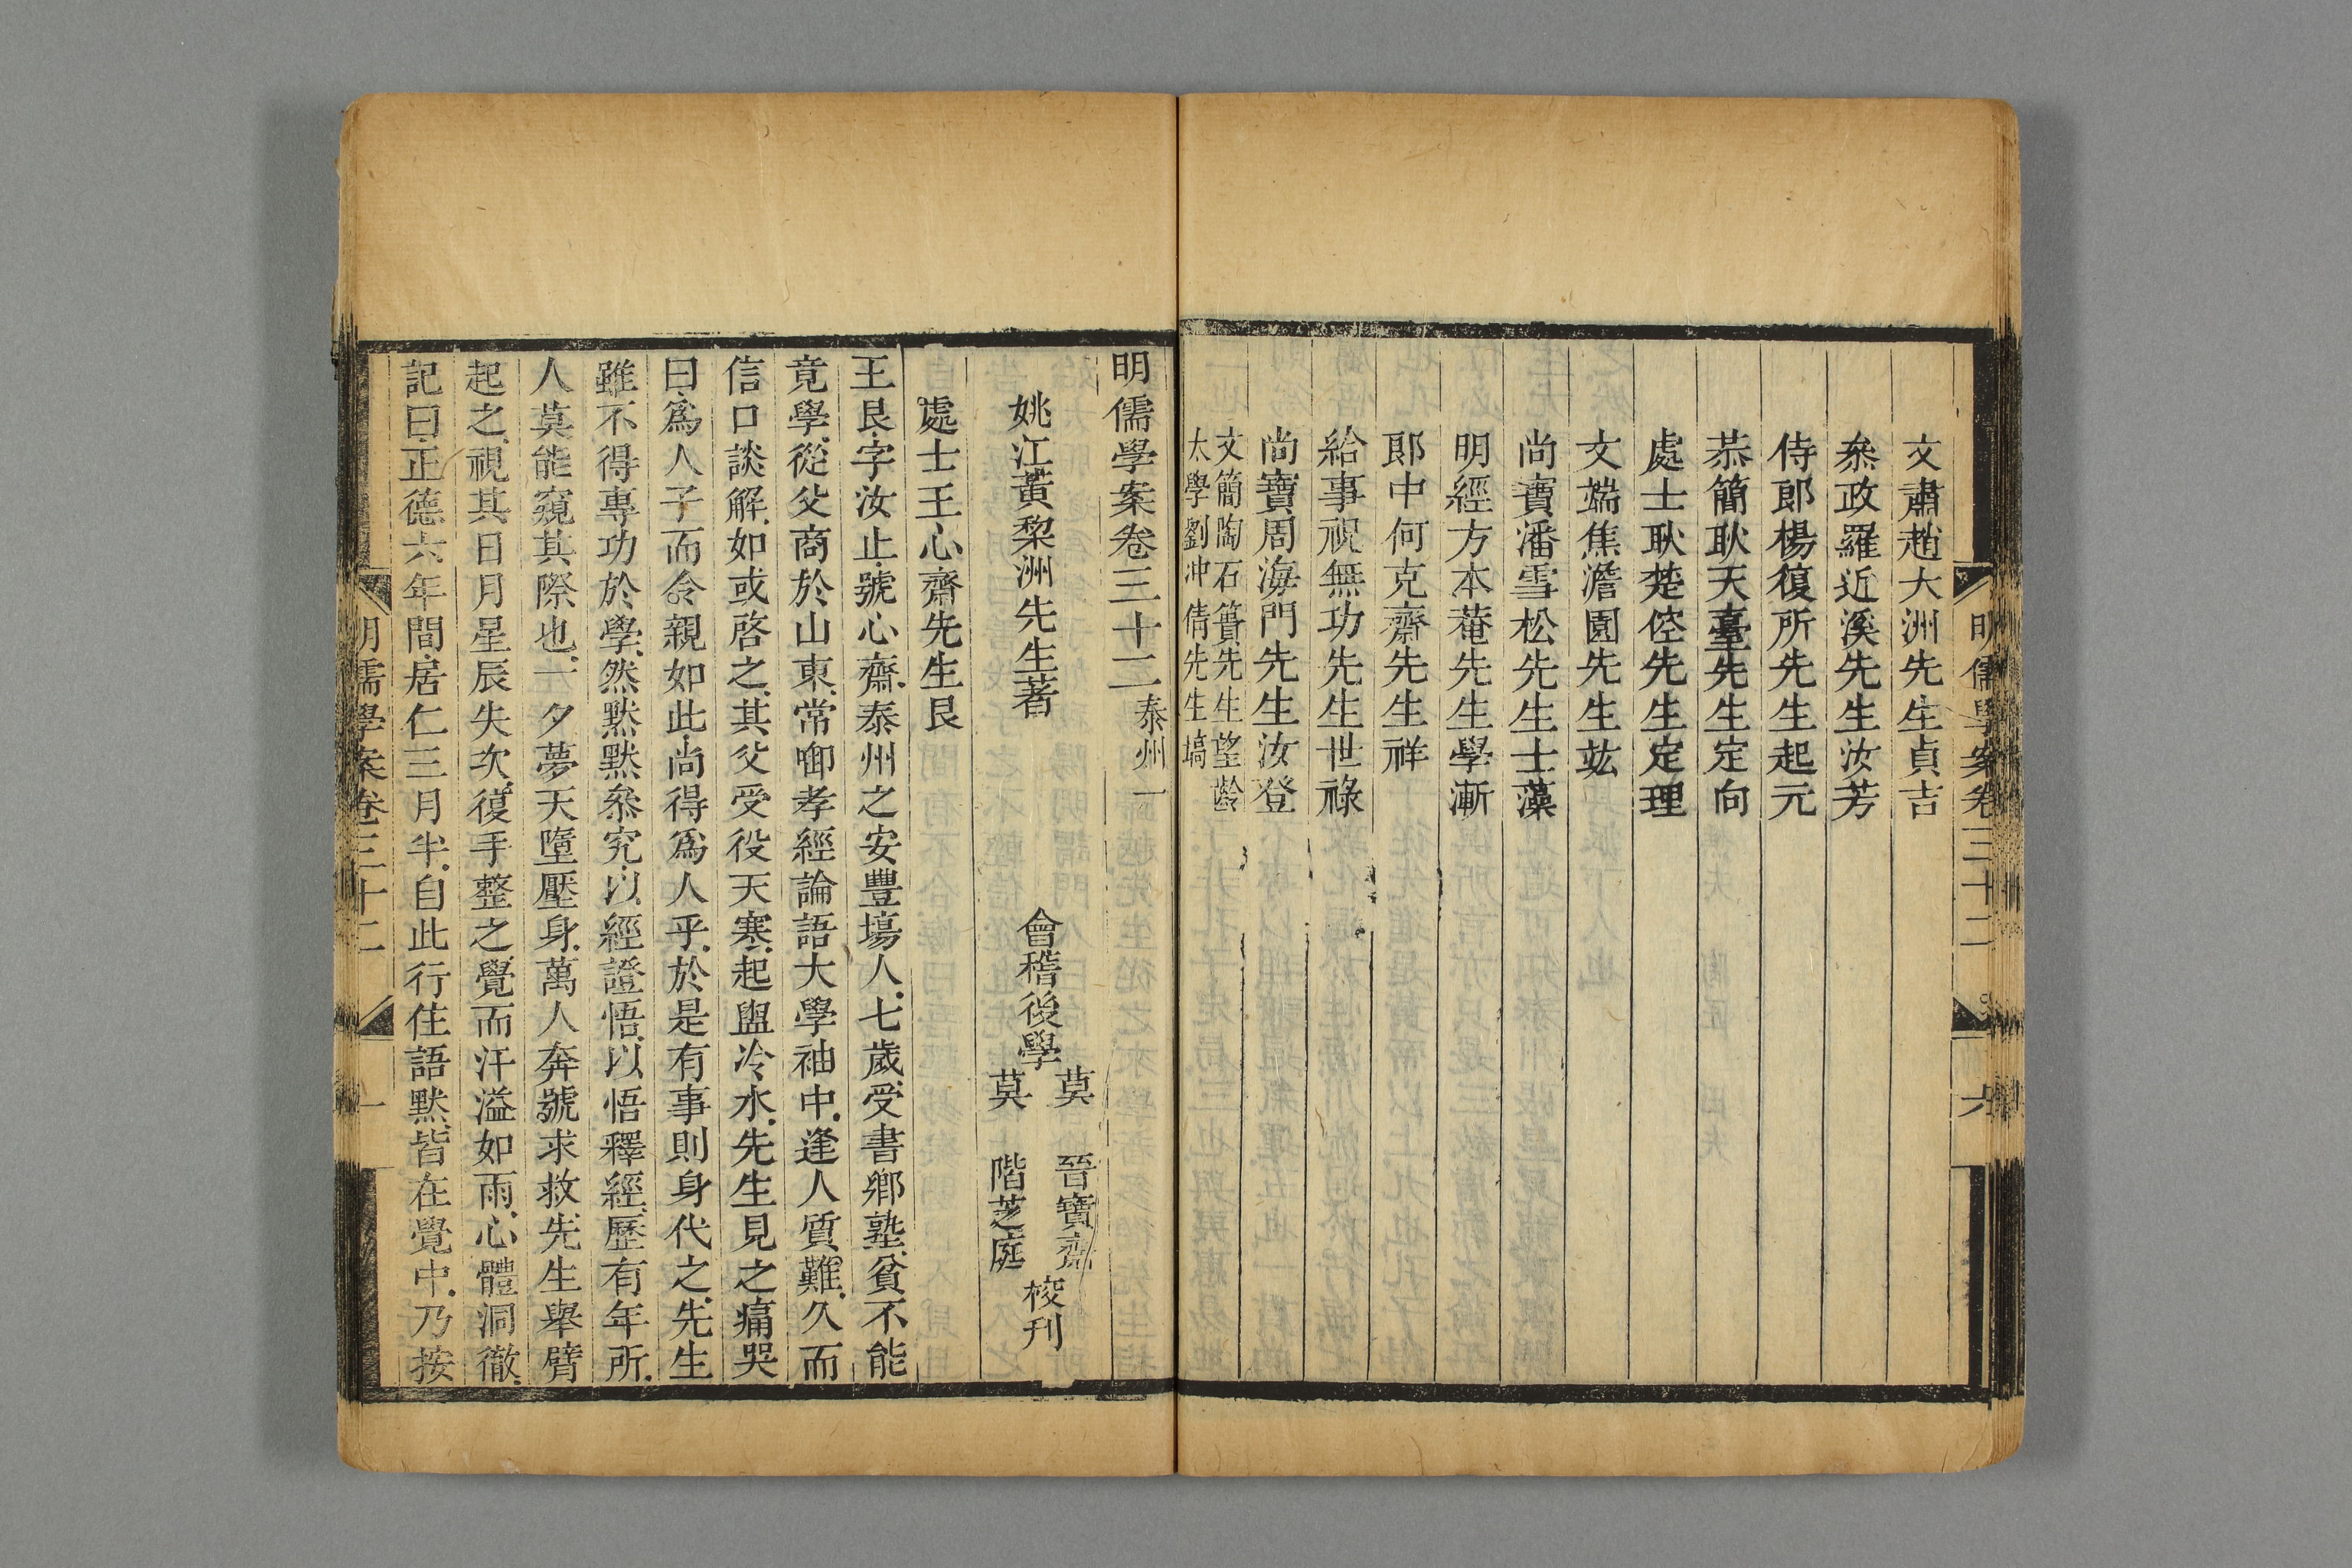 明儒學案卷三十二
六
文肅趙大洲先生貞吉
叅政羅近溪先生汝芳
侍郎楊復所先生起元
恭簡耿天臺先生定向
處士耿楚倥先生定理
文端焦澹園先生竑
尚寶潘雪松先生士藻
明經方本菴先生學漸
郎中何克齋先生祥
給事祝無功先生世祿
尚寶周海門先生汝登
文簡陶石簣先生望齡
太學劉冲倩先生塙
明儒學案卷三十二 泰州一
姚江黃黎洲先生著
會稽後學
莫 晉寶齋
莫 階芝庭
校刊
處士王心齋先生艮
王艮字汝止號心齋泰州之安豐塲人七歲受書鄉塾貧不能
竟學從父商於山東常啣孝經論語大學袖中逢人質難久而
信口談解如或啓之其父受役天寒起盥冷水先生見之痛哭
曰爲人子而令親如此尚得爲人乎於是有事則身代之先生
雖不得專功於學然默默叅究以經證悟以悟釋經歷有年所
人莫能窺其際也一夕夢天墮壓身萬人奔號求救先生舉臂
起之視其日月星辰失次復手整之覺而汗溢如雨心體洞徹
記曰正德六年間居仁三月半自此行住語默皆在覺中乃按
明儒學案卷三十二
一